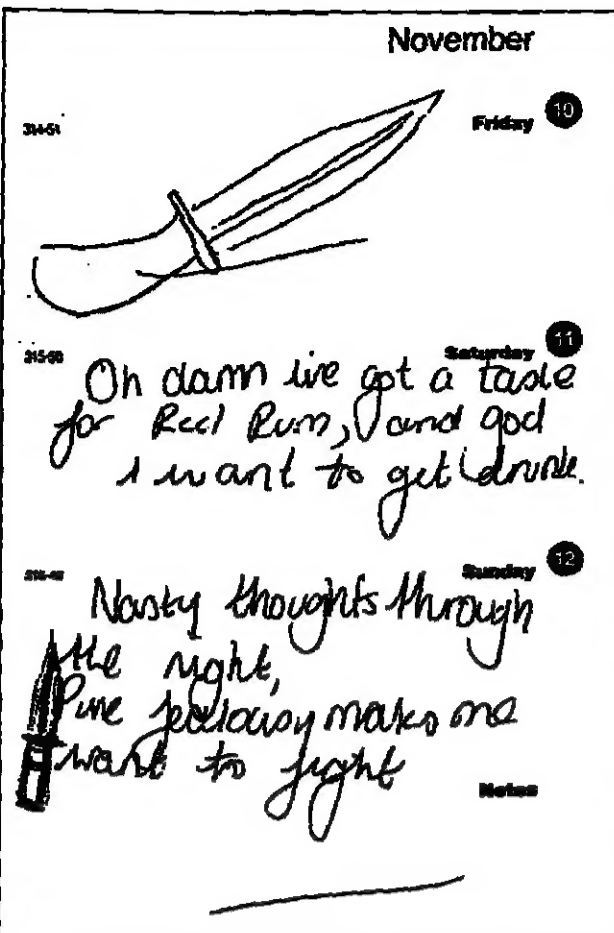 November
10
Friday
314-51
11
Saturday
315-50
Oh damn ive got a taste
for Red Rum, and god
i want to get drunk.
12
Sunday
316-49
Nasty thoughts through
the night,
Pure jealousy makes me
want to fight
Notes